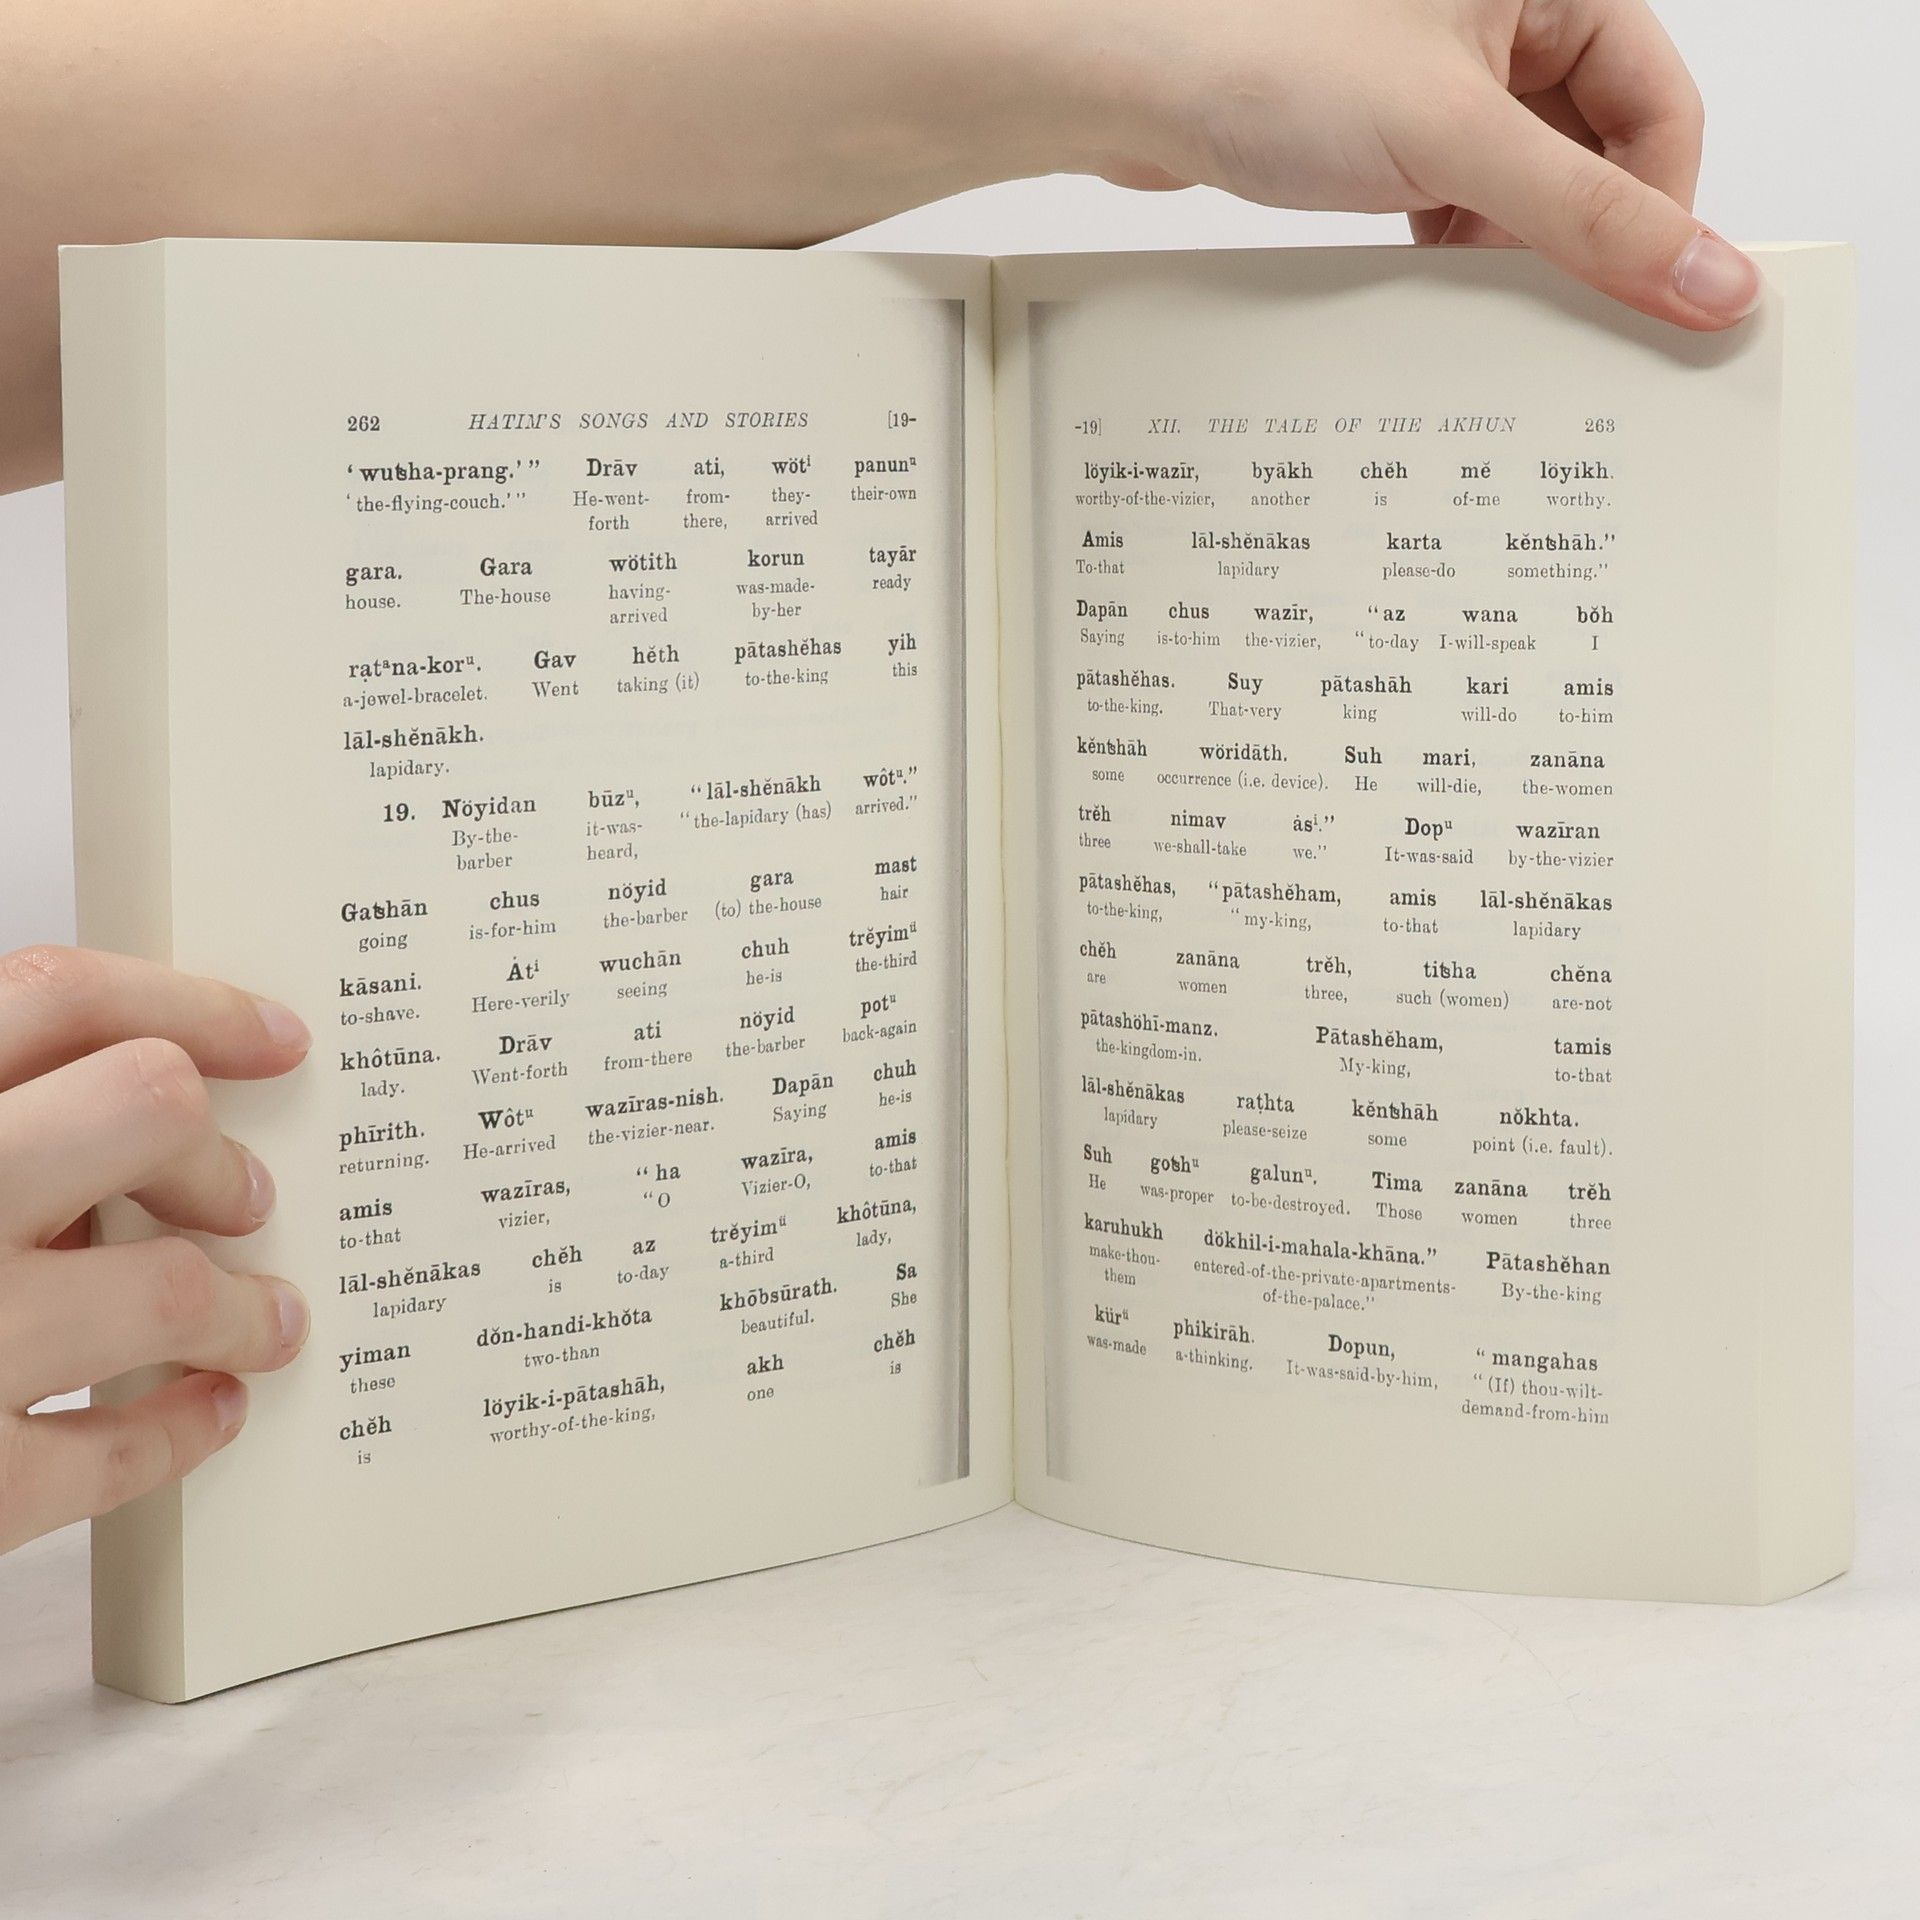 262 HATIM'S SONGS AND STORIES [19-
‘wutsha-prang.’” Drāv ati, wötⁱ panunᵘ
‘the-flying-couch.’” He-went- from- they- their-own
forth there, arrived
gara. Gara wötith korun tayār
house. The-house having- was-made- ready
arrived by-her
raṭᵃna-korᵘ. Gav hĕth pātashĕhas yih
a-jewel-bracelet. Went taking (it) to-the-king this
lāl-shĕnākh.
lapidary.
19. Nöyidan būzᵘ, “lāl-shĕnākh wôtᵘ.”
By-the- it-was- “the-lapidary (has) arrived.”
barber heard,
Gatshān chus nöyid gara mast
going is-for-him the-barber (to) the-house hair
kāsani. Ȧtⁱ wuchān chuh trĕyimᵘ̈
to-shave. Here-verily seeing he-is the-third
khôtūna. Drāv ati nöyid potᵘ
lady. Went-forth from-there the-barber back-again
phīrith. Wôtᵘ wazīras-nish. Dapān chuh
returning. He-arrived the-vizier-near. Saying he-is
amis wazīras, “ha wazīra, amis
to-that vizier, “O Vizier-O, to-that
lāl-shĕnākas chĕh az trĕyimᵘ̈ khôtūna,
lapidary is to-day a-third lady,
yiman dŏn-handi-khŏta khōbsūrath. Sa
these two-than beautiful. She
chĕh löyik-i-pātashāh, akh chĕh
is worthy-of-the-king, one is
-19] XII. THE TALE OF THE AKHUN 263
löyik-i-wazīr, byākh chĕh mĕ löyikh.
worthy-of-the-vizier, another is of-me worthy.
Amis lāl-shĕnākas karta kĕntshāh.”
To-that lapidary please-do something.”
Dapān chus wazīr, “az wana bŏh
Saying is-to-him the-vizier, “to-day I-will-speak I
pātashĕhas. Suy pātashāh kari amis
to-the-king. That-very king will-do to-him
kĕntshāh wöridāth. Suh mari, zanāna
some occurrence (i.e. device). He will-die, the-women
trĕh nimav ȧsⁱ.” Dopᵘ wazīran
three we-shall-take we.” It-was-said by-the-vizier
pātashĕhas, “pātashĕham, amis lāl-shĕnākas
to-the-king, “my-king, to-that lapidary
chĕh zanāna trĕh, titsha chĕna
are women three, such (women) are-not
pātashöhī-manz. Pātashĕham, tamis
the-kingdom-in. My-king, to-that
lāl-shĕnākas raṭhta kĕntshāh nŏkhta.
lapidary please-seize some point (i.e. fault).
Suh gotshᵘ galunᵘ. Tima zanāna trĕh
He was-proper to-be-destroyed. Those women three
karuhukh dökhil-i-mahala-khāna.” Pātashĕhan
make-thou- entered-of-the-private-apartments- By-the-king
them of-the-palace.”
kürᵘ̈ phikirāh. Dopun, “mangahas
was-made a-thinking. It-was-said-by-him, “(If) thou-wilt-
demand-from-him